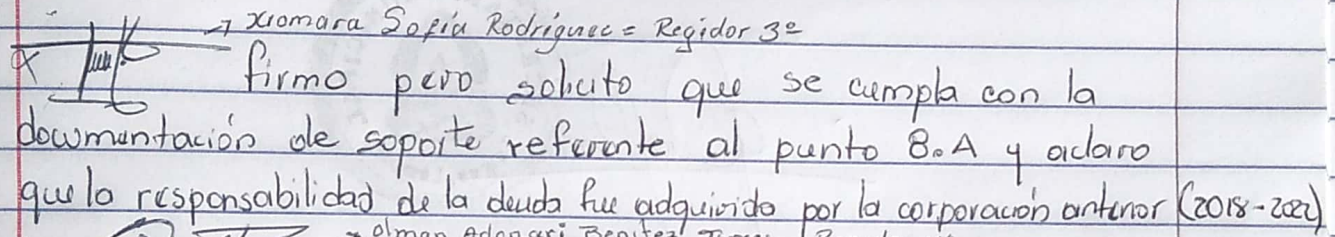 → Xiomara Sofía Rodríguec = Regidor 3º
firmo pero solicito que se cumpla con la
documentación de soporte referente al punto 8.A y aclaro
que la responsabilidad de la deuda fue adquirido por la corporación anterior (2018-2022)
Olman Adonari Benitez